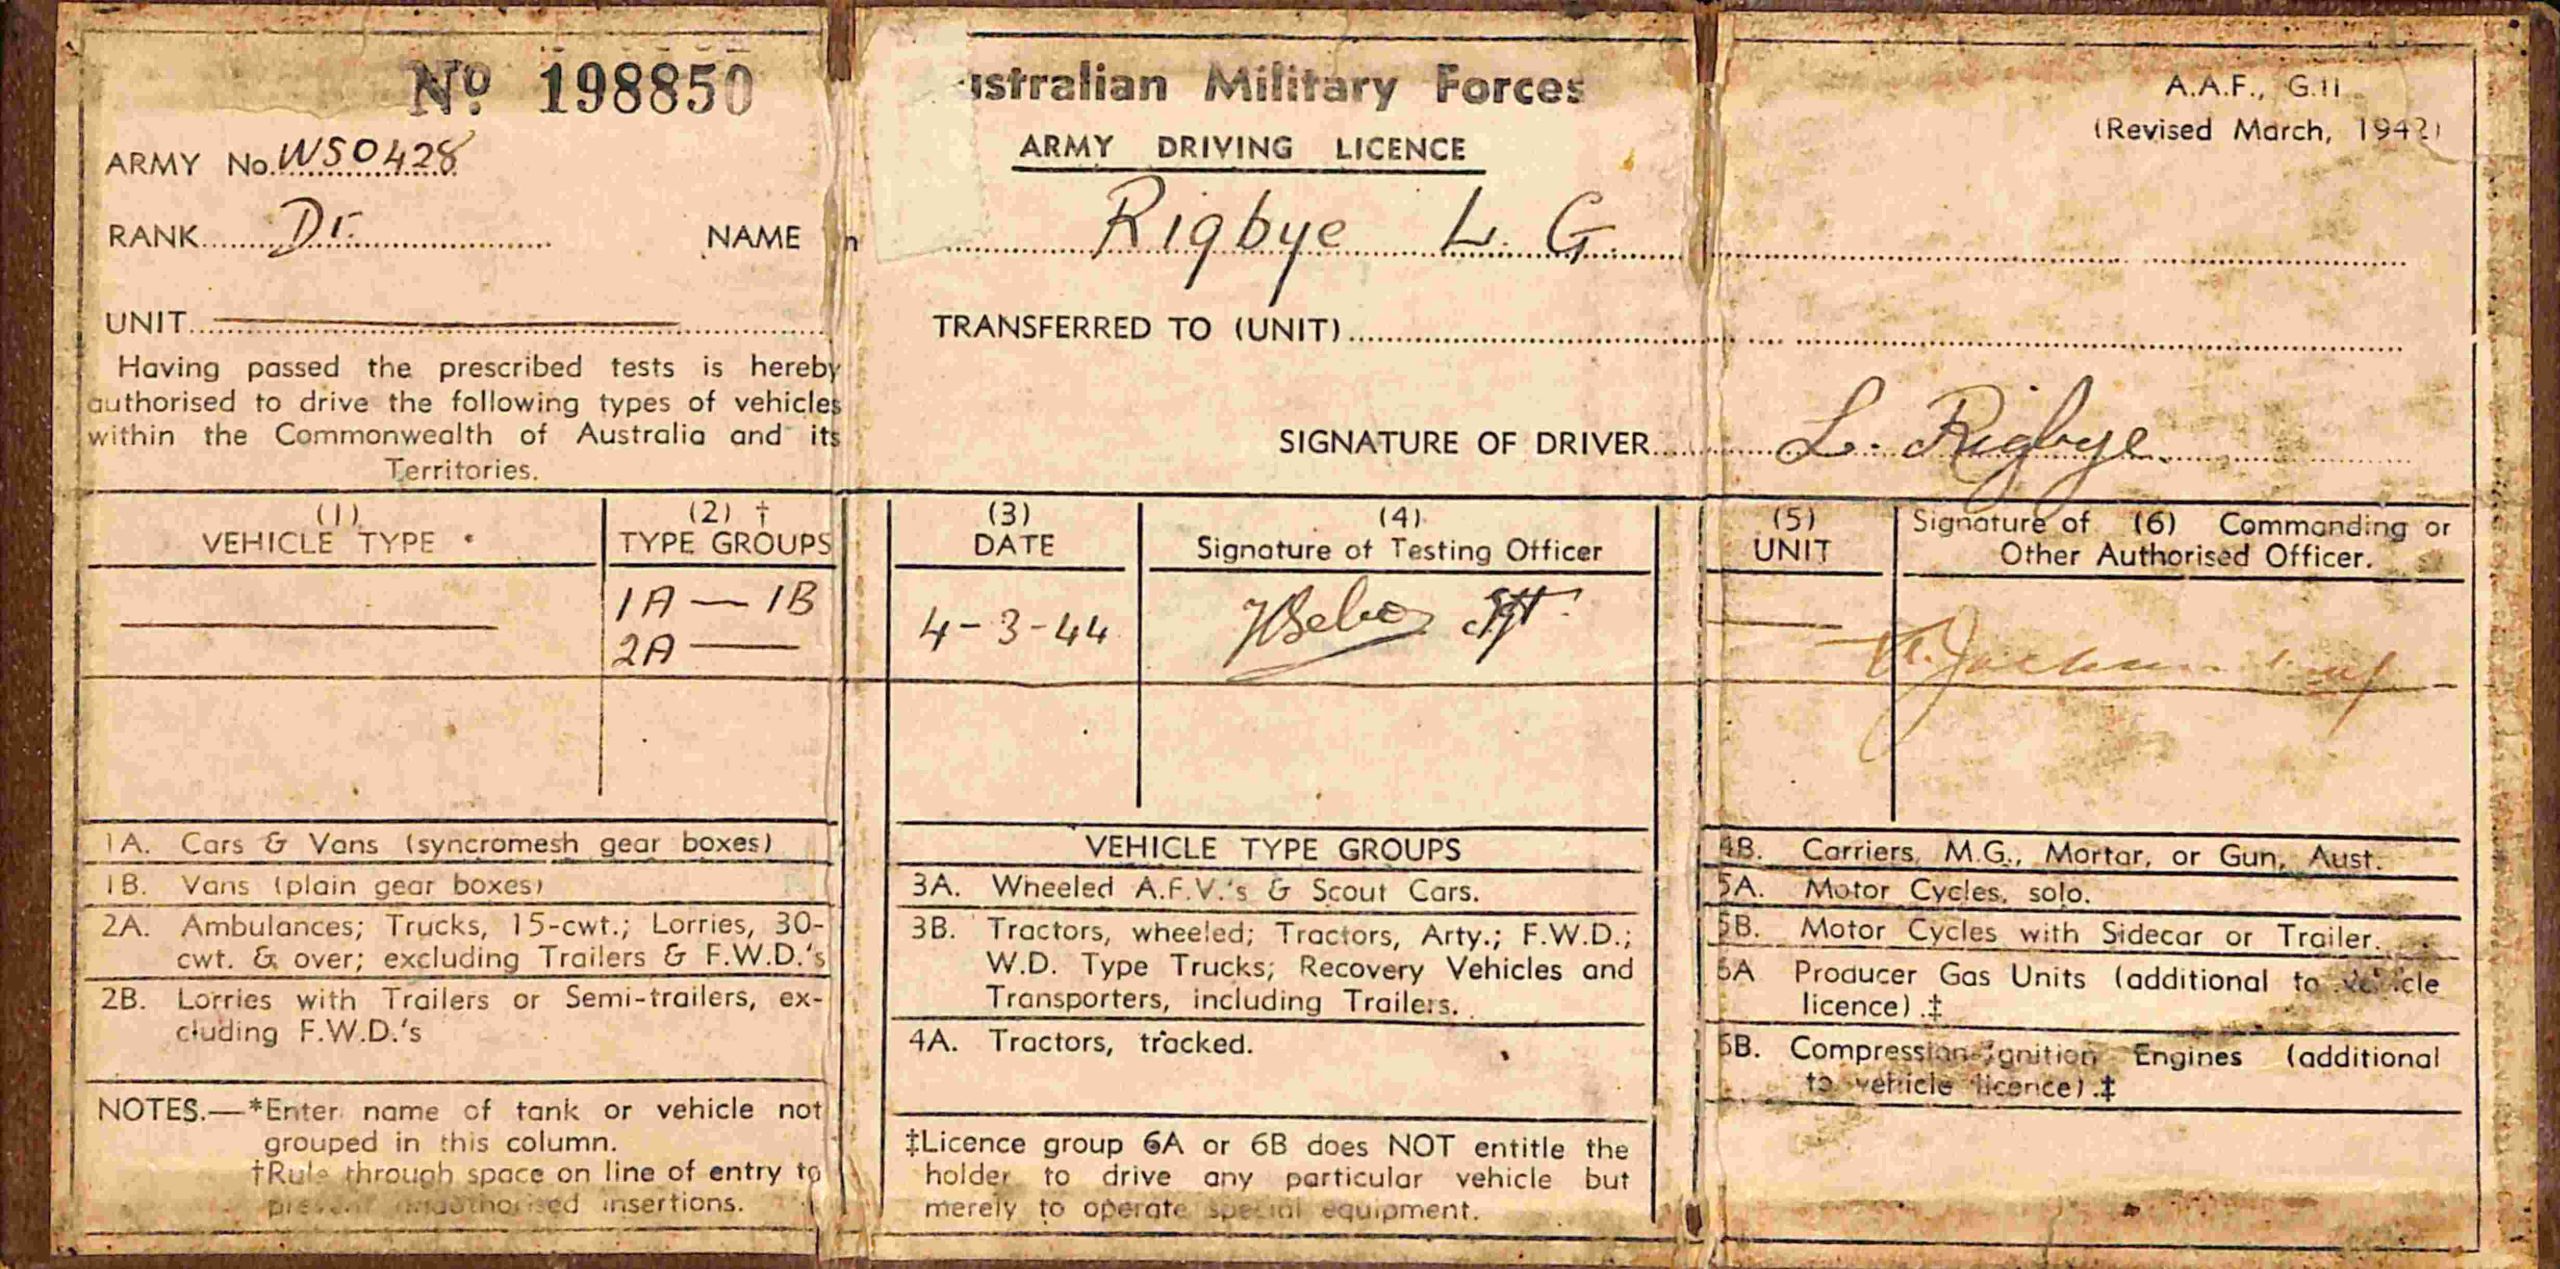 No 198850
ARMY No. WS0428
RANK Dr. NAME
UNIT
Having passed the prescribed tests is hereby
authorised to drive the following types of vehicles
within the Commonwealth of Australia and its
Territories.
ustralian Military Forces
ARMY DRIVING LICENCE
Rigbye L. G.
TRANSFERRED TO (UNIT)
SIGNATURE OF DRIVER L. Rigbye
A.A.F., G.11
(Revised March, 1942)
(1)
VEHICLE TYPE *
(2) †
TYPE GROUPS
1A — 1B
2A —
(3)
DATE
4-3-44
(4)
Signature of Testing Officer
Sgt.
(5)
UNIT
Signature of (6) Commanding or
Other Authorised Officer.
1A. Cars & Vans (syncromesh gear boxes)
1B. Vans (plain gear boxes)
2A. Ambulances; Trucks, 15-cwt.; Lorries, 30-
cwt. & over; excluding Trailers & F.W.D.'s
2B. Lorries with Trailers or Semi-trailers, ex-
cluding F.W.D.'s
NOTES.—*Enter name of tank or vehicle not
grouped in this column.
†Rule through space on line of entry to
prevent unauthorised insertions.
VEHICLE TYPE GROUPS
3A. Wheeled A.F.V.'s & Scout Cars.
3B. Tractors, wheeled; Tractors, Arty.; F.W.D.;
W.D. Type Trucks; Recovery Vehicles and
Transporters, including Trailers.
4A. Tractors, tracked.
‡Licence group 6A or 6B does NOT entitle the
holder to drive any particular vehicle but
merely to operate special equipment.
4B. Carriers, M.G., Mortar, or Gun, Aust.
5A. Motor Cycles, solo.
5B. Motor Cycles with Sidecar or Trailer.
6A Producer Gas Units (additional to vehicle
licence).‡
6B. Compression-Ignition Engines (additional
to vehicle licence).‡